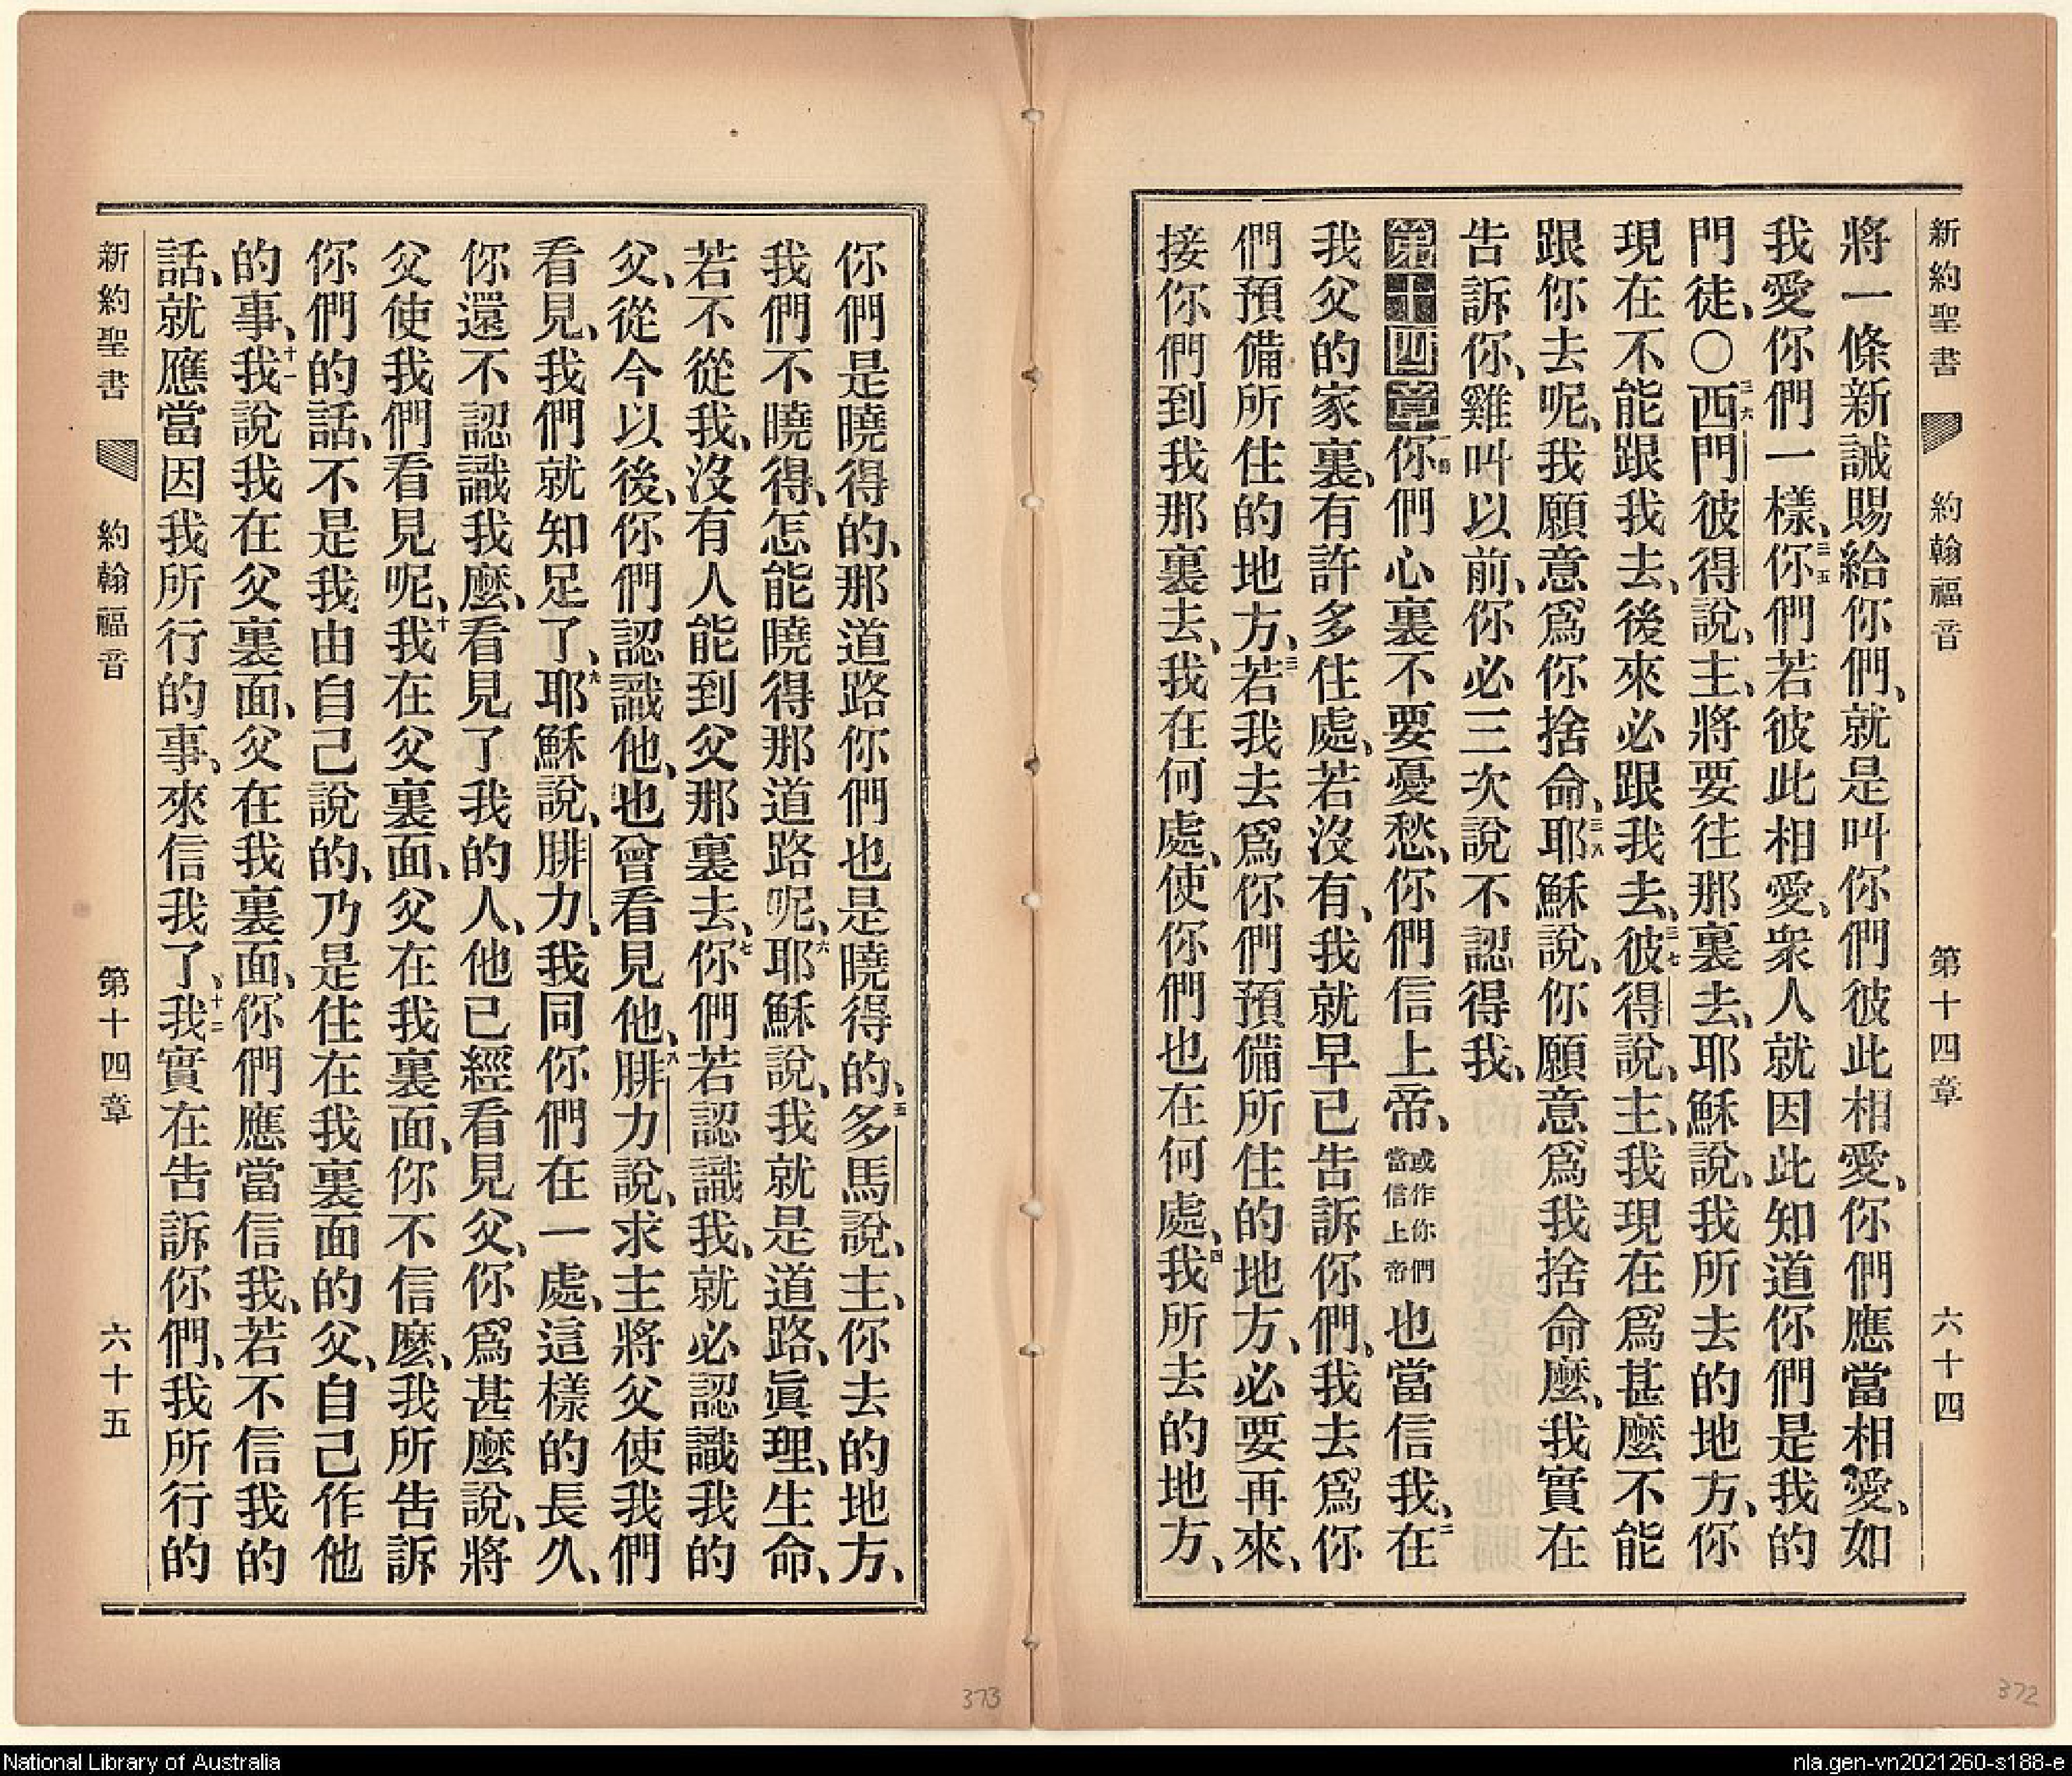 新約聖書 約翰福音 第十四章 六十四
將一條新誡賜給你們、就是叫你們彼此相愛、你們應當相愛、如
我愛你們一樣、三五你們若彼此相愛、衆人就因此知道你們是我的
門徒、○三六西門彼得說、主、將要往那裏去、耶穌說、我所去的地方、你
現在不能跟我去、後來必跟我去、三七彼得說、主、我現在爲甚麼不能
跟你去呢、我願意爲你捨命、三八耶穌說、你願意爲我捨命麼、我實在
告訴你、雞叫以前、你必三次說不認得我、
第十四章一節你們心裏不要憂愁、你們信上帝、或作你們當信上帝也當信我、二在
我父的家裏、有許多住處、若沒有、我就早已告訴你們、我去爲你
們預備所住的地方、三若我去爲你們預備所住的地方、必要再來、
接你們到我那裏去、我在何處、使你們也在何處、四我所去的地方、
你們是曉得的、那道路你們也是曉得的、五多馬說、主、你去的地方、
我們不曉得、怎能曉得那道路呢、六耶穌說、我就是道路、眞理、生命、
若不從我、沒有人能到父那裏去、七你們若認識我、就必認識我的
父、從今以後、你們認識他、也曾看見他、八腓力說、求主將父使我們
看見、我們就知足了、九耶穌說、腓力、我同你們在一處、這樣的長久、
你還不認識我麼、看見了我的人、他已經看見父、你爲甚麼說、將
父使我們看見呢、十我在父裏面、父在我裏面、你不信麼、我所告訴
你們的話、不是我由自己說的、乃是住在我裏面的父、自己作他
的事、十一我說我在父裏面、父在我裏面、你們應當信我、若不信我的
話、就應當因我所行的事、來信我了、十二我實在告訴你們、我所行的
新約聖書 約翰福音 第十四章 六十五
373
372
National Library of Australia
nla.gen-vn2021260-s188-e